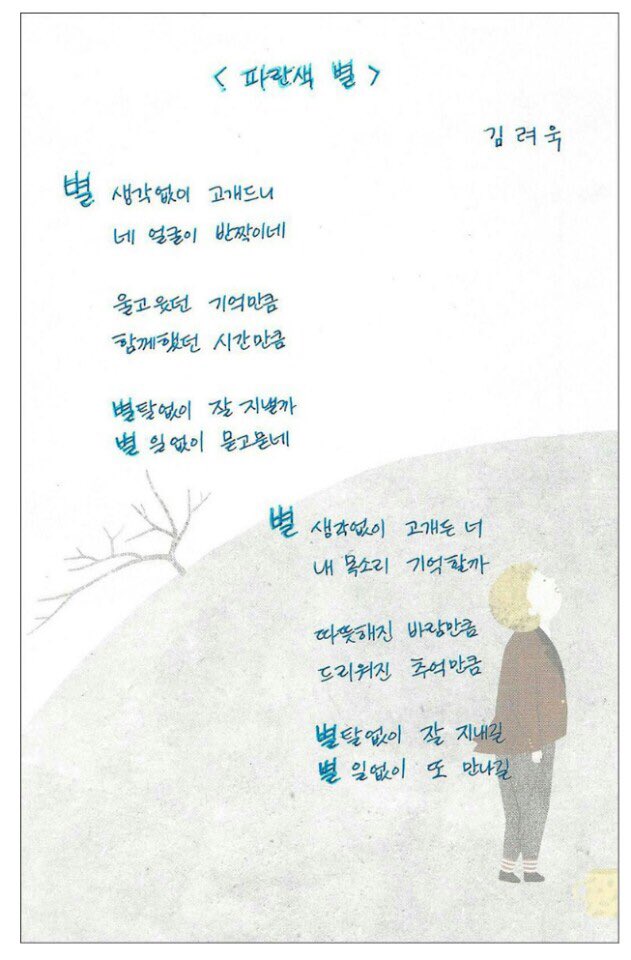 < 파란색 별 >
김려욱
별 생각없이 고개드니
네 얼굴이 반짝이네
울고웃던 기억만큼
함께했던 시간만큼
별탈없이 잘 지낼까
별 일없이 묻고묻네
별 생각없이 고개든 너
내 목소리 기억할까
따뜻해진 바람만큼
드리워진 추억만큼
별탈없이 잘 지내길
별 일없이 또 만나길